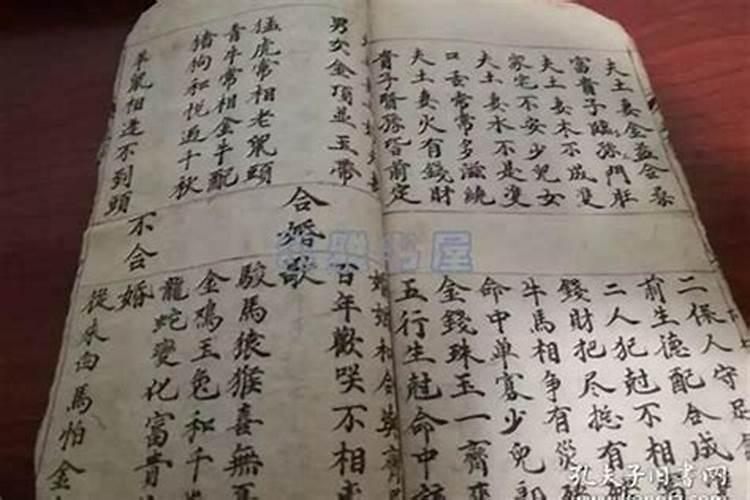 夫土妻金益合
富貴子臨孫門旺
夫土妻木不成雙
家宅不安少兒女
夫土妻水不是雙
口舌常常多滋繞
夫土妻火有錢財
貴子賢孫
前定
二保人守足
前生德配合成
二人犯尅不相
錢財把尽
有
牛馬相争有災
命中单寡少兒郎
金錢珠玉一齊來
五行生尅命中
婚姻和合
男女金頂並玉帶
猛虎常相老鼠頭
青牛常相金牛配
猪狗和悦过千秋
羊鼠相逢不到頭
合婚歌
百年歡咲不相
駿馬猿猴喜無
金鷄玉兔和千
龍蛇變化富貴
不合婚
從来白馬怕金
书屋
孔夫子旧书网